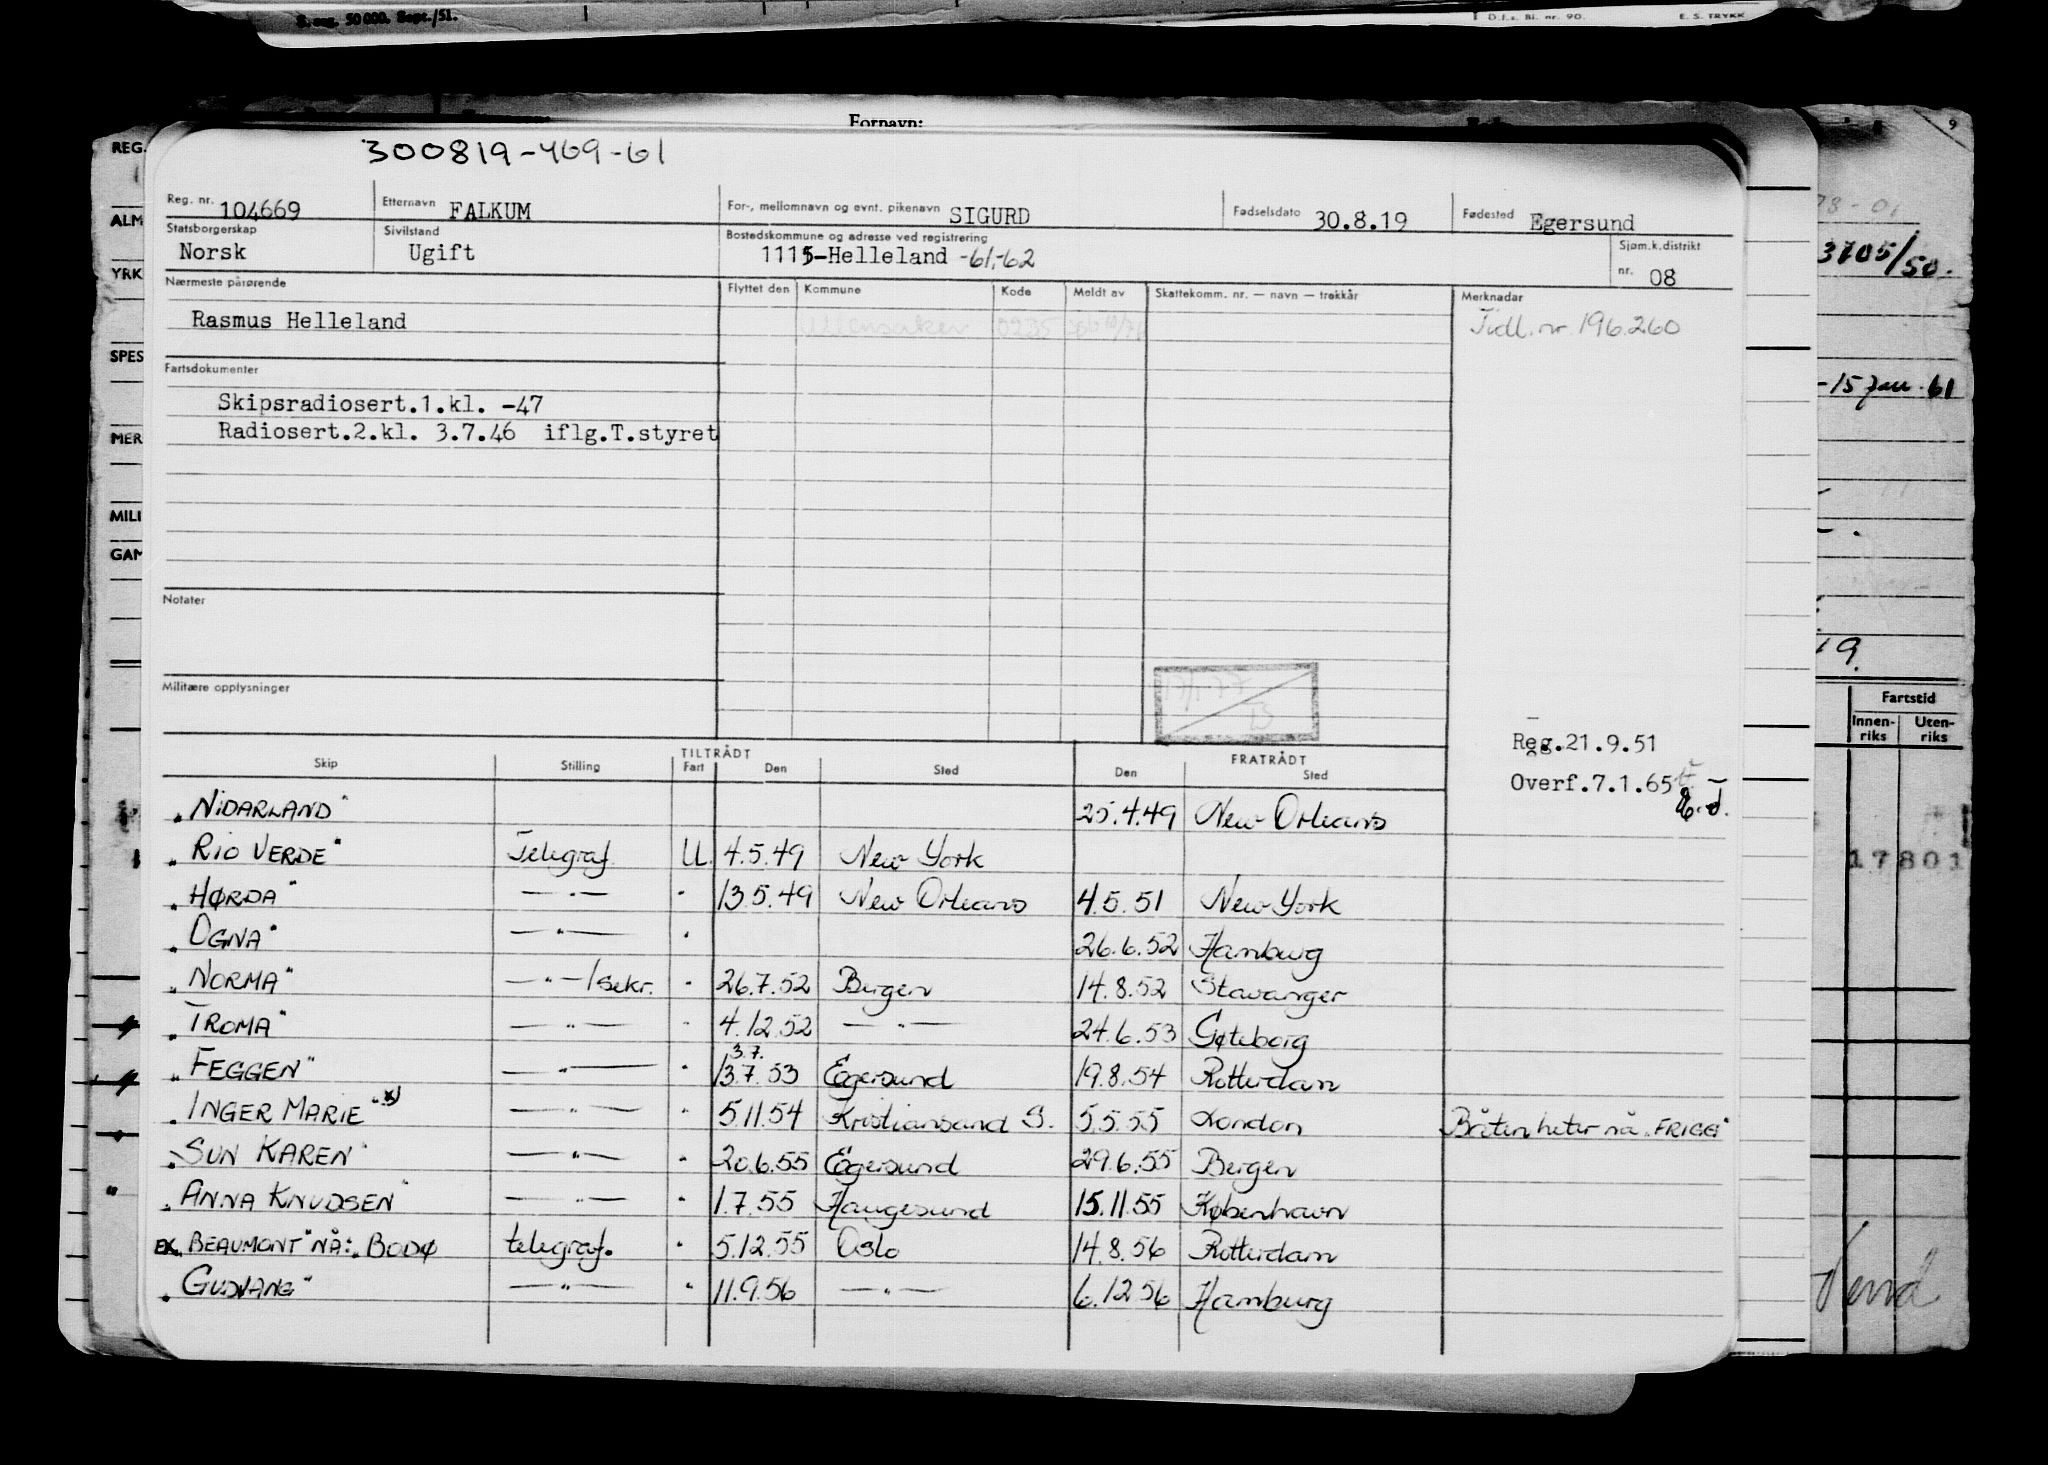 S. øug. 50 000. Sept./51.
D.f.s. Bl. nr. 90. E. S. TRYKK
Fornavn:
9
300819-469-61
REG.
ALM
YRK
SPES
MER
MILI
GAM
Reg. nr. 104669 Etternavn FALKUM For-, mellomnavn og evnt. pikenavn SIGURD Fødselsdato 30.8.19 Fødested Egersund
Statsborgerskap Norsk Sivilstand Ugift Bostedskommune og adresse ved registrering 1115-Helleland -61,-62 Sjøm.k.distrikt nr. 08
Nærmeste pårørende Flyttet den Kommune Kode Meldt av Skattekomm. nr. — navn — trekkår Merknadar
Rasmus Helleland Ullensaker 0235 Tidl. nr. 196.260
Fartsdokumenter
Skipsradiosert.1.kl. -47
Radiosert.2.kl. 3.7.46 iflg.T.styret
Notater
Militære opplysninger
17/1-77
B
Reg.21.9.51
Overf.7.1.65
TILTRÅDT FRATRÅDT
Skip Stilling Fart Den Sted Den Sted
"NIDARLAND" 25.4.49 New Orleans
"RIO VERDE" Telegraf. U. 4.5.49 New York
"HØRDA" —"— " 13.5.49 New Orleans 4.5.51 New York
"OGNA" —"— " 26.6.52 Hamburg
"NORMA" —"—/sekr. " 26.7.52 Bergen 14.8.52 Stavanger
"TROMA" —"— " 4.12.52 —"— 24.6.53 Gøteborg
3.7.
"FEGGEN" —"— " 13.7.53 Egersund 19.8.54 Rotterdam
"INGER MARIE" x) —"— " 5.11.54 Kristiansand S. 5.5.55 London Båten heter nå "FRIGG"
"SUN KAREN" —"— " 20.6.55 Egersund 29.6.55 Bergen
"ANNA KNUDSEN" —"— " 1.7.55 Haugesund 15.11.55 København
EX. "BEAUMONT" NÅ: "BODØ telegraf. " 5.12.55 Oslo 14.8.56 Rotterdam
"GUDVANG" —"— " 11.9.56 —"— 6.12.56 Hamburg
3705/50.
-15 Jan. 61
19.
Fartstid
Innen-riks Uten-riks
17801